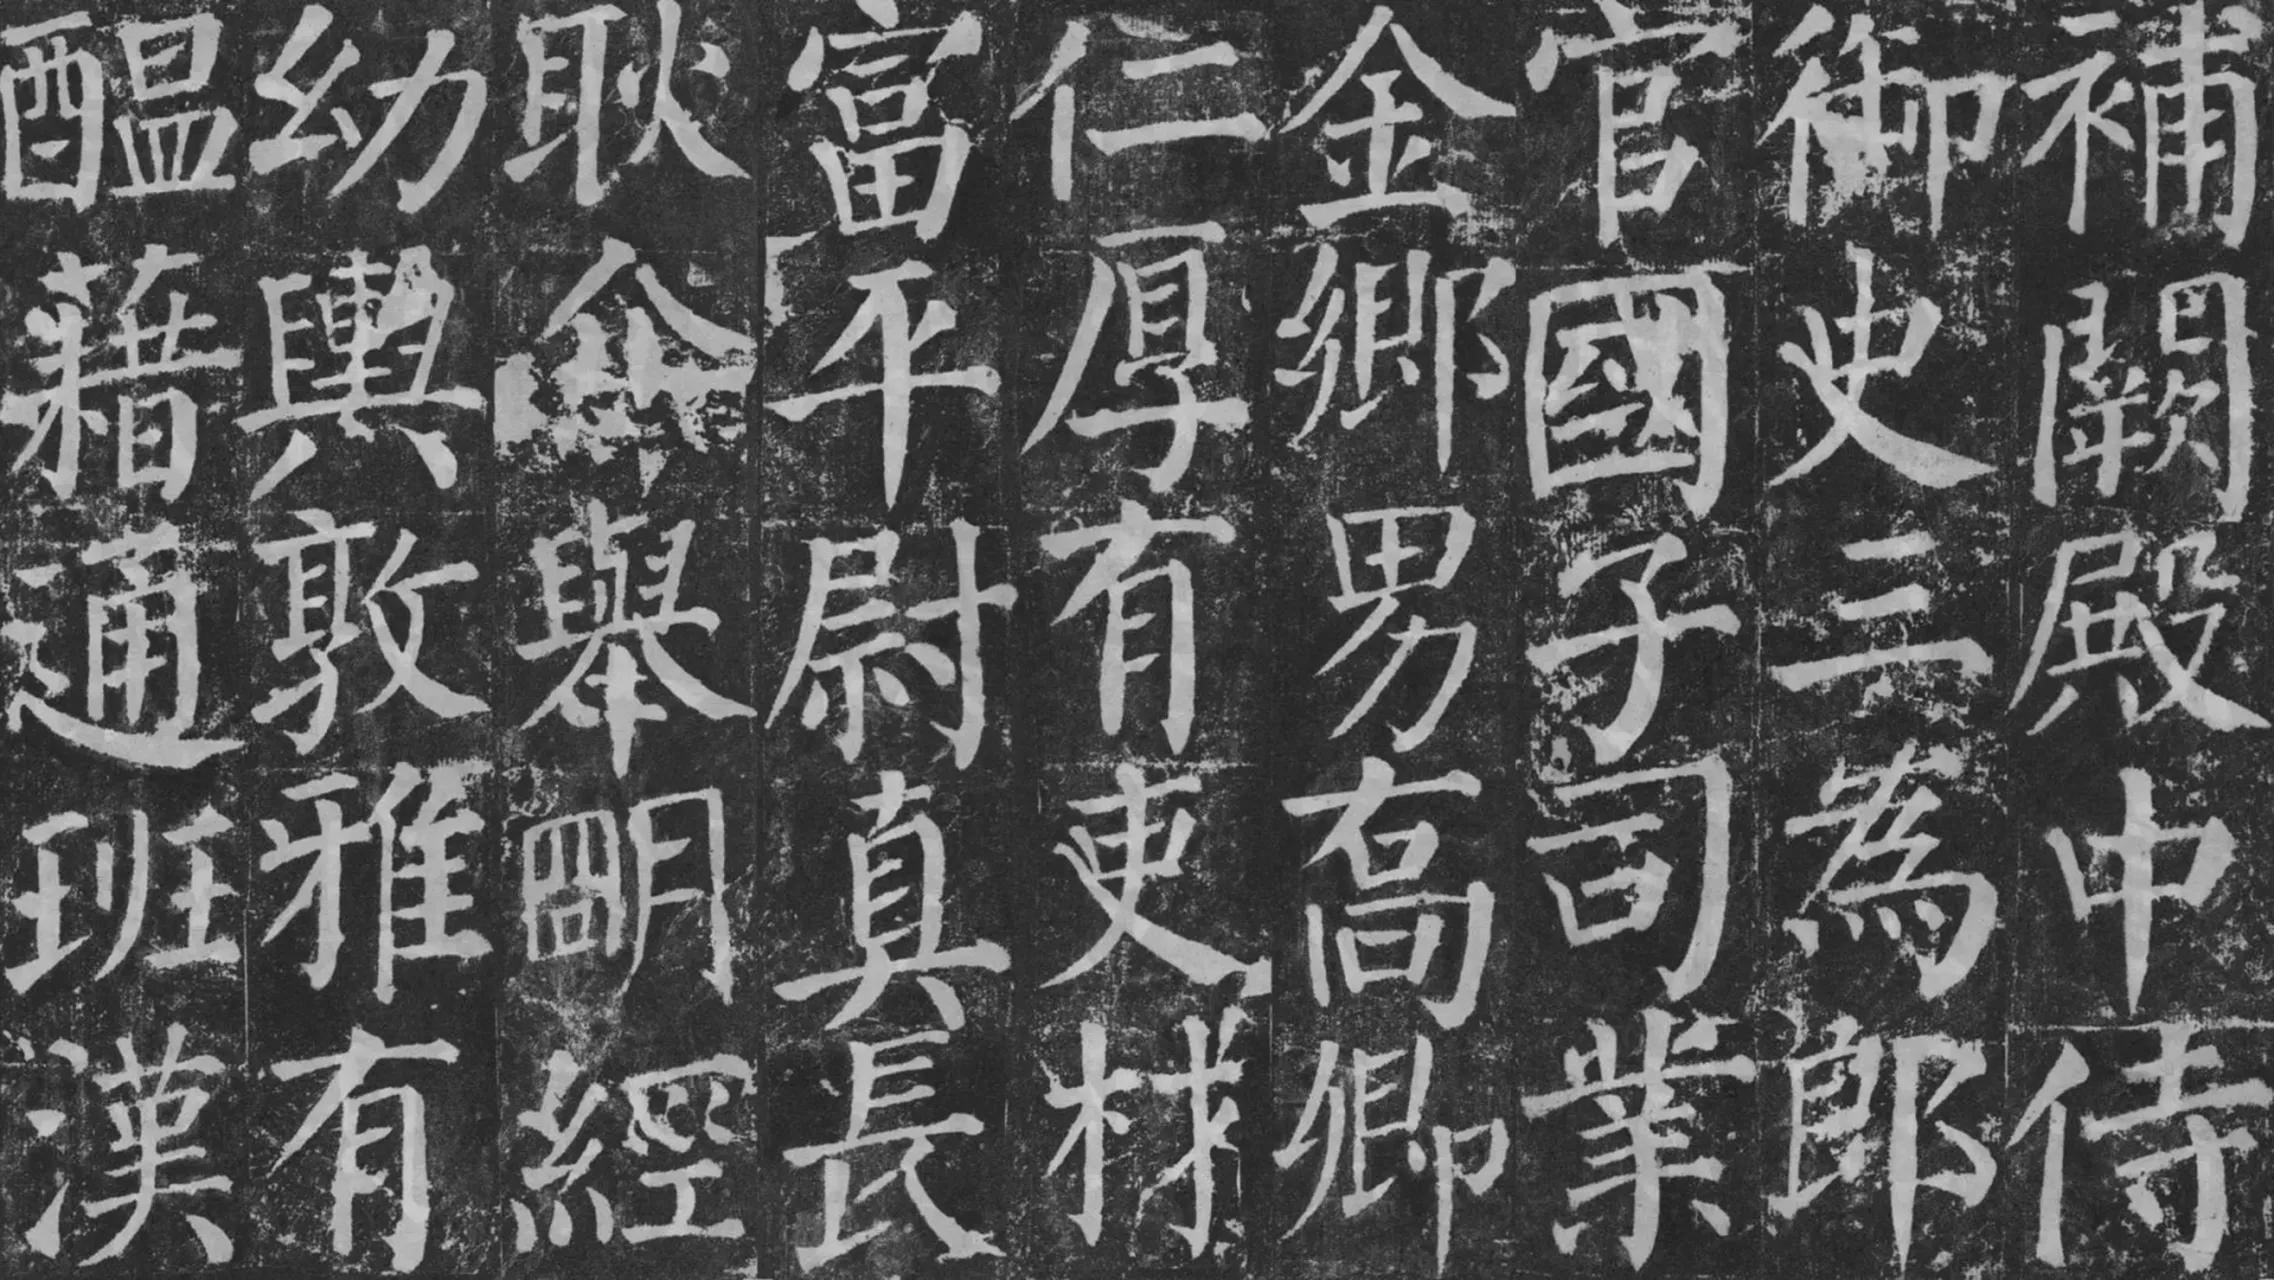 補闕殿中侍
御史三為郎
官國子司業
金鄉男髙卿
仁厚有吏材
富平尉真長
耿介舉眀經
幼輿敦雅有
醖藉通班漢